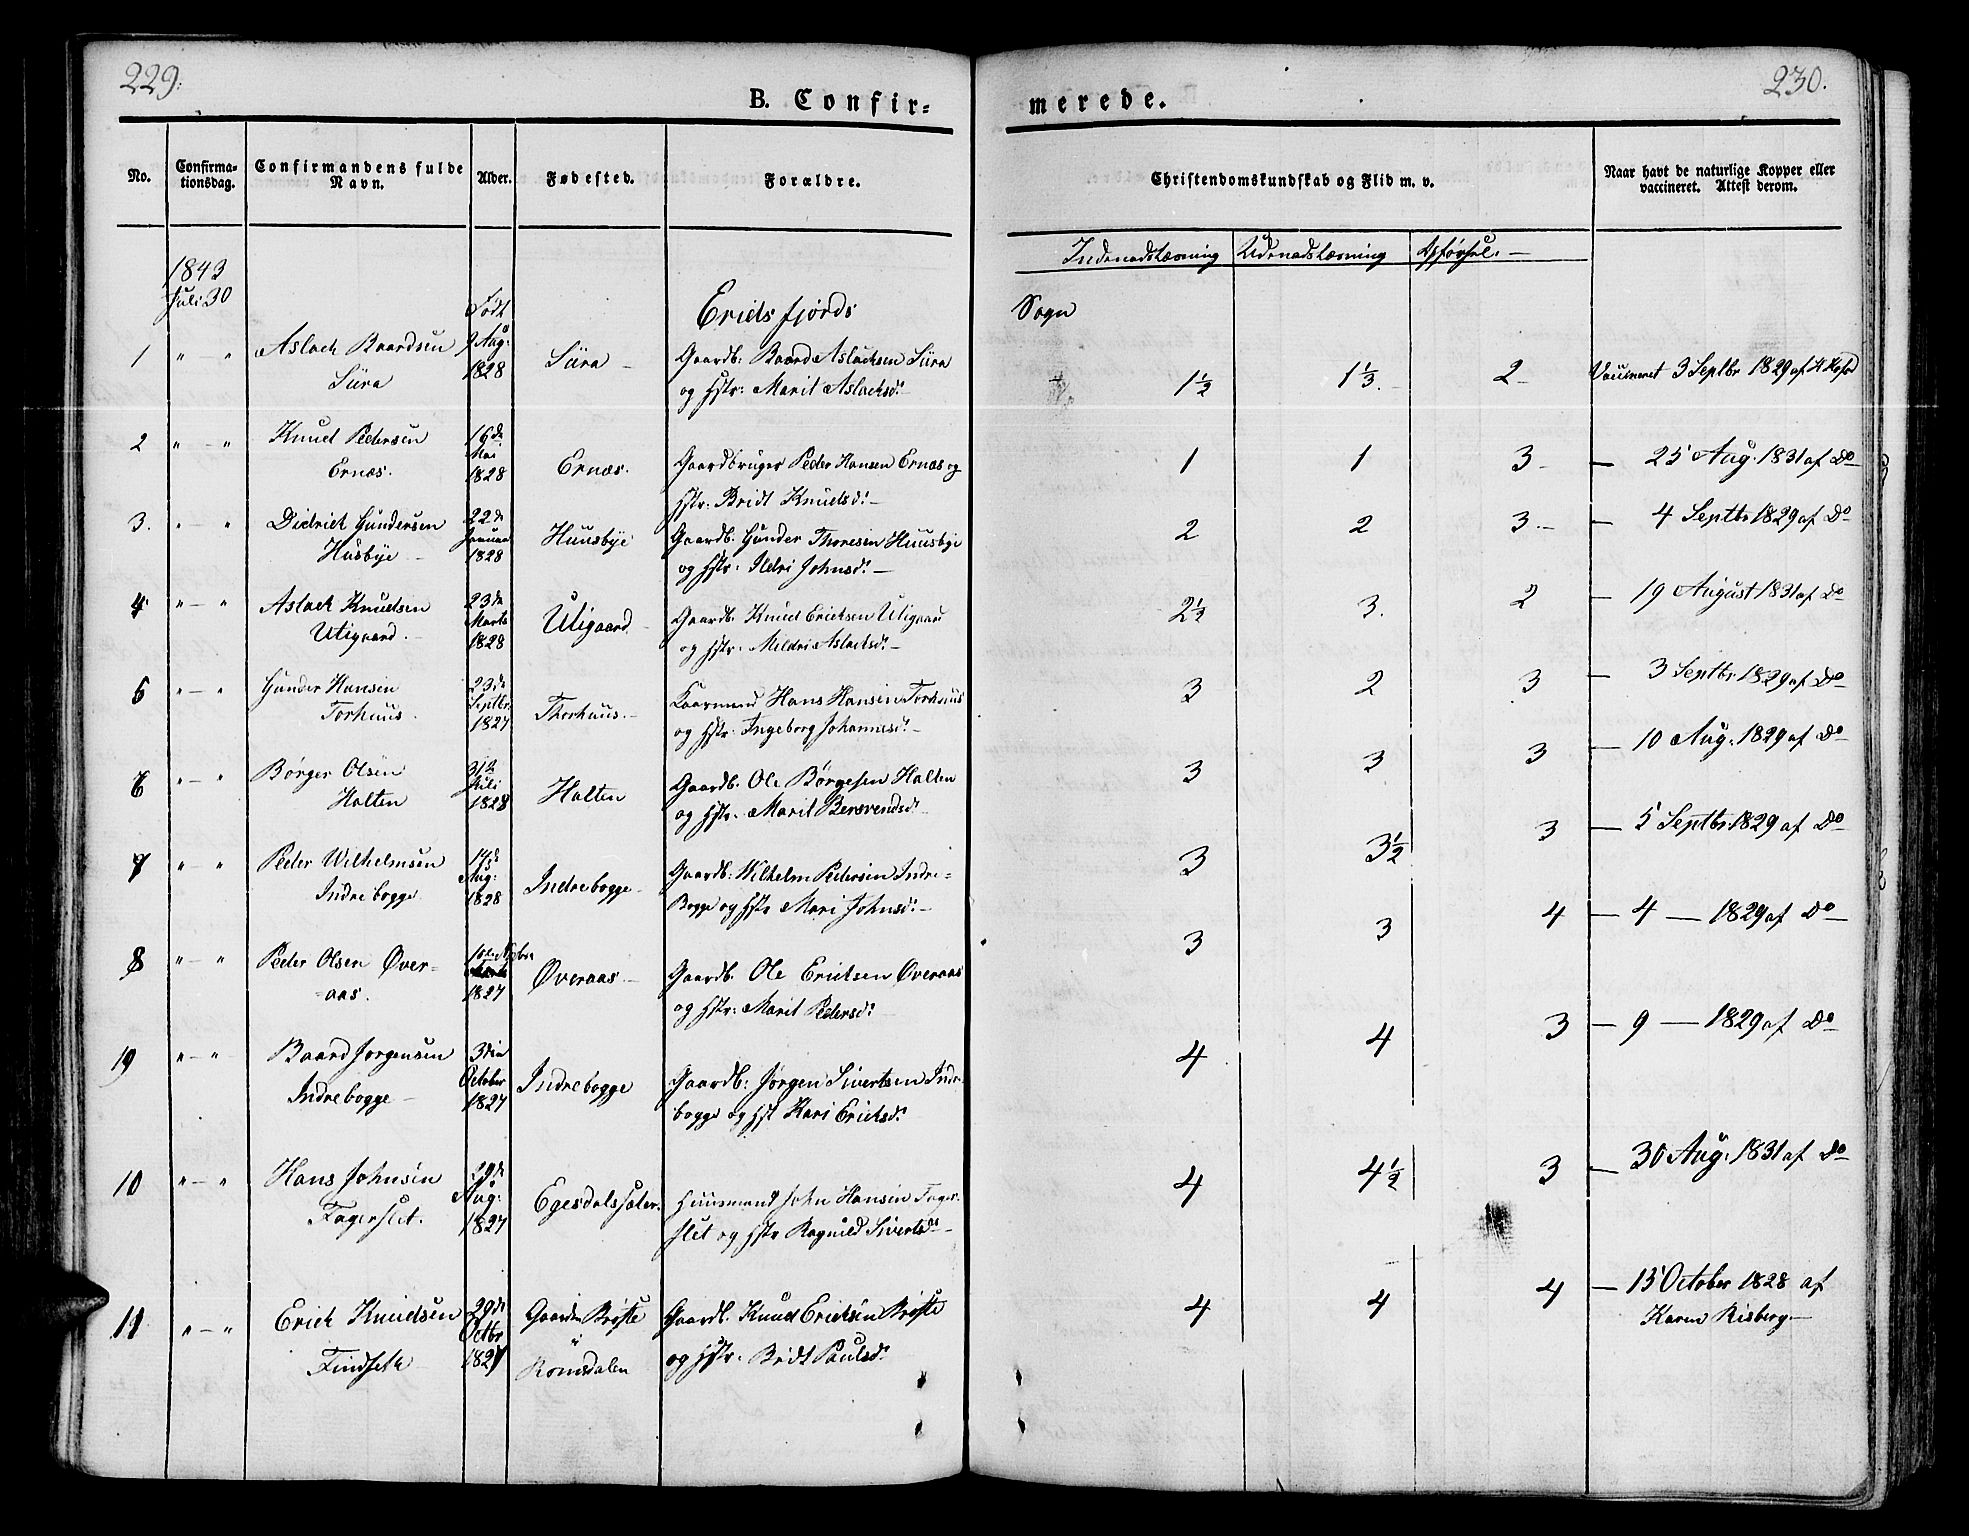 229.
230.
B. Confir=
merede.
No.
Confirma-
tionsdag.
Confirmandens fulde
Navn.
Alder.
Fødested.
Forældre.
Christendomskundskab og Flid m. v.
Naar havt de naturlige Kopper eller
vaccineret. Attest derom.
Indenadslæsning Udenadslæsning Opførsel. —
1843
Juli 30
Født
Eridsfjords
Sogn
1 " — " Aslach Baardsen
Siira
9 Aug:
1828
Siira —
Gaardb: Baard Aslachsen Siira
og Hstr: Marit Aslachsd:
1½ 1⅓. 2 — Vaccineret 3 Septbr 1829 af
2 " — " Knud Pedersen
Ernæs.
16de
Mai
1828
Ernæs.
Gaardbruger Peder Hansen Ernæs og
Hstr: Bridt Knudsd: —
1 1 3 — — 25 Aug. 1831 af Do
3. " " Didrich Gundersen
Husbye —
22de
Januar
1828
Huusbye
Gaardb: Gunder Thoresen Huusbye
og Hstr: Ildri Johnsd: —
2 2 3. — — 4 Septbr 1829 af Do
4 " — " Aslach Knudsen
Utigaard. —
23de
Marts
1828
Utigaard —
Gaardb. Knud Ericksen Utigaard
og Hstr: Mildri Aslachsd: —
2½ 3. 2 — 19 August 1831 af Do
5 " — " Gunder Hansen
Torhuus.
23de
Septbr
1827
Thorhuus. —
Hans Hansen Torhuus
og Hstr. Ingeborg Johannesd: —
3 2 3 — 3 Septbr 1829 af Do
6 " — " Børger Olsen
Halten
31te
Juli
1828
Halten
Gaardb. Ole Børgesen Halten
og Hstr. Marit Bersvendsd:
3 3 3 — 10 Aug. 1829 af Do
7 " — " Peder Wilhelmsen
Indrebogge
14de
Aug:
1828
Indrebogge —
Gaardb: Wilhelm Pedersen Indre-
Bogge og Hstr Mari Johnsd: —
3 3½ 3 — 5 Septbr. 1829 af Do
8 " — " Peder Olsen Øver-
=aas.
1827
Øveraas —
Gaardb. Ole Ericksen Øveraas
og Hstr: Marit Pedersd:
3 3 4 — 4 — 1829 af Do
19 " — " Baard Jørgensen
Indrebogge —
3die
October
1827
Indrebogge
Gaardb: Jørgen Sivertsen Indre
bogge og Hst Kari Ericksd:
4 4 3 — 9 — 1829 af Do
10 " — " Hans Johnsen
Fagerslet.
29de
Aug:
1827
Egesdalssæter.
Huusmand John Hansen Fager-
slet og Hstr Ragnild Sivertsd: —
4 4½ 3 — 30 Aug. 1831 af Do
11 " — " Erich Knudsen
Findseth
29de
Octbr
1827
Gaarden Brøste
i
Romsdalen
Gaardb. Knud Ericksen Brøste
og Hstr. Bridt Paulsd:
4 4 4 — 15 October 1828 af
Karen Risberg —